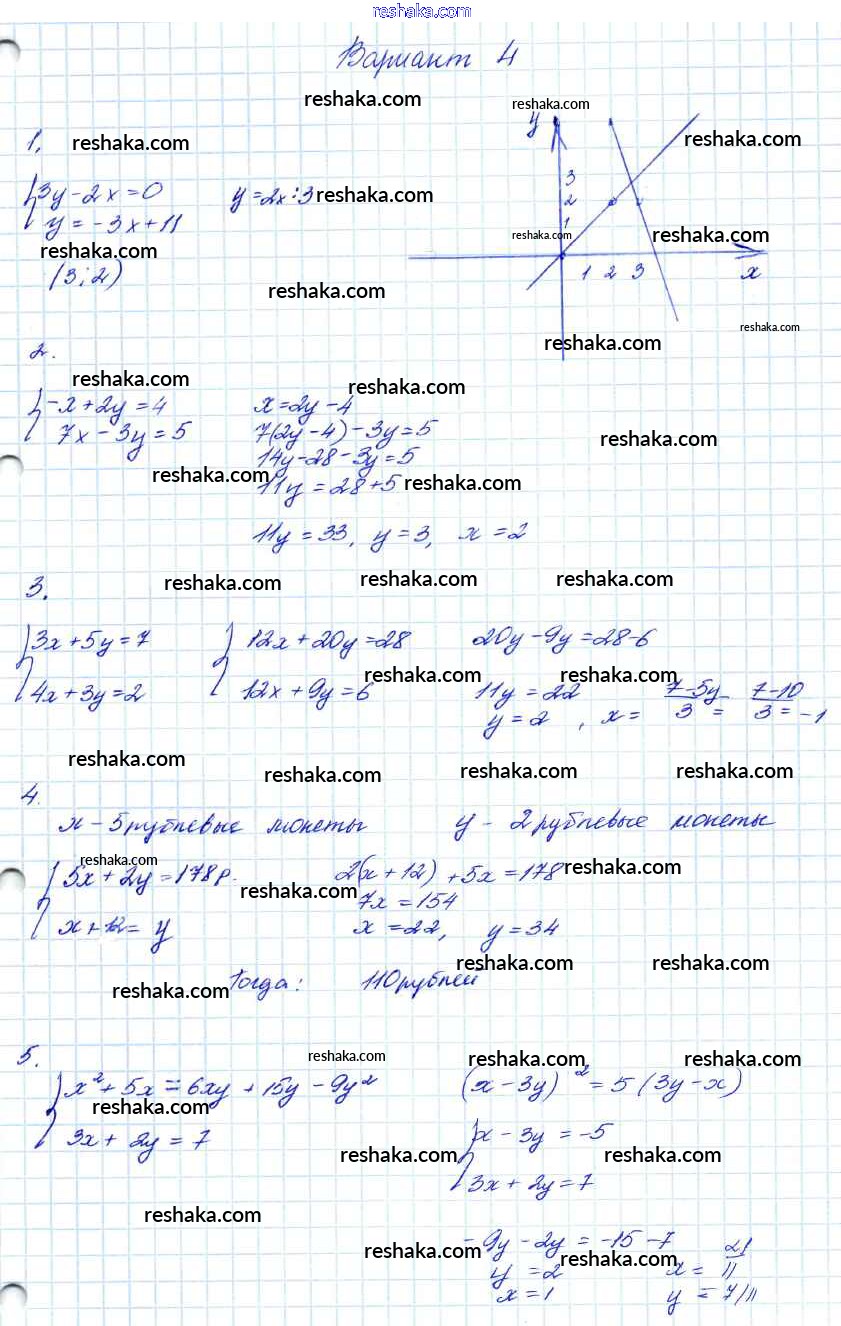 reshaka.com
Вариант 4
reshaka.com reshaka.com
y
1, reshaka.com reshaka.com
{3y-2x=0 y=2x:3 reshaka.com
y=-3x+11
3
2
1
reshaka.com reshaka.com reshaka.com
(3;2)
1 2 3 x
reshaka.com
reshaka.com
2. reshaka.com
reshaka.com reshaka.com
{-x+2y=4 x=2y-4
7x-3y=5 7(2y-4)-3y=5
reshaka.com
14y-28-3y=5
reshaka.com 11y=28+5 reshaka.com
11y=33, y=3, x=2
3. reshaka.com reshaka.com reshaka.com
{3x+5y=7 {12x+20y=28 20y-9y=28-6
reshaka.com reshaka.com
4x+3y=2 12x+9y=6 11y=22
y=2, x= 7-5y/3 = 7-10/3 = -1
reshaka.com reshaka.com reshaka.com reshaka.com
4.
x - 5рублевые монеты y - 2рублевые монеты
reshaka.com reshaka.com
{5x+2y=178р. 2(x+12)+5x=178
reshaka.com 7x=154
x+12=y x=22, y=34
reshaka.com reshaka.com
reshaka.com Тогда: 110рублей
5. reshaka.com reshaka.com reshaka.com
{x²+5x=6xy+15y-9y² (x-3y)²=5(3y-x)
reshaka.com
3x+2y=7 {x-3y=-5
reshaka.com reshaka.com
3x+2y=7
reshaka.com
-9y-2y=-15-7
reshaka.com reshaka.com
y=2 x=21/11
x=1 y=7/11